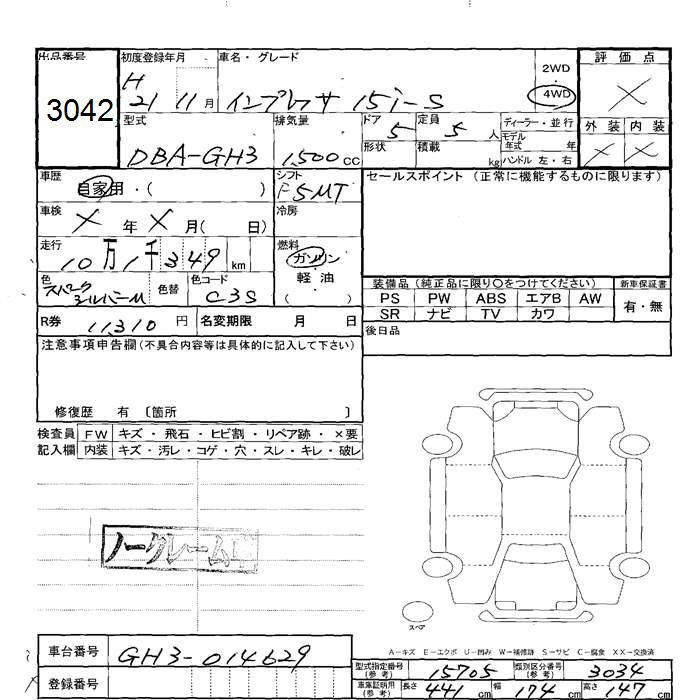 出品番号 初度登録年月 車名・グレード 2WD 評価点
3042 H 21 11月 インプレッサ 15i-S 4WD ×
型式 排気量 ドア 定員 ディーラー・並行 外装 内装
DBA-GH3 1,500cc 5 5人 モデル年式 年 × ×
形状 積載 kg ハンドル 左・右
車歴 シフト セールスポイント (正常に機能するものに限ります)
自家用・( ) F5MT
車検 冷房
×年×月( 日)
走行 燃料
10万1千349km ガソリン
色 色替 色コード 軽油
スパークシルバーM C3S ( )
装備品 (純正品に限り〇をつけてください) 新車保証書
PS PW ABS エアB AW 有・無
SR ナビ TV カワ
R券 11310円 名変期限 月 日 後日品
注意事項申告欄(不具合内容等は具体的に記入して下さい)
修復歴 有 〔箇所 〕
検査員 FW キズ・飛石・ヒビ割・リペア跡・×要
記入欄 内装 キズ・汚レ・コゲ・穴・スレ・キレ・破レ
ノークレーム
スペア
A-キズ E-エクボ U-凹み W-補修跡 S-サビ C-腐食 XX-交換済
車台番号 GH3-014629
型式指定番号(参考) 15705 類別区分番号(参考) 3034
登録番号
車庫証明用(参考) 長さ 441cm 幅 174cm 高さ 147cm